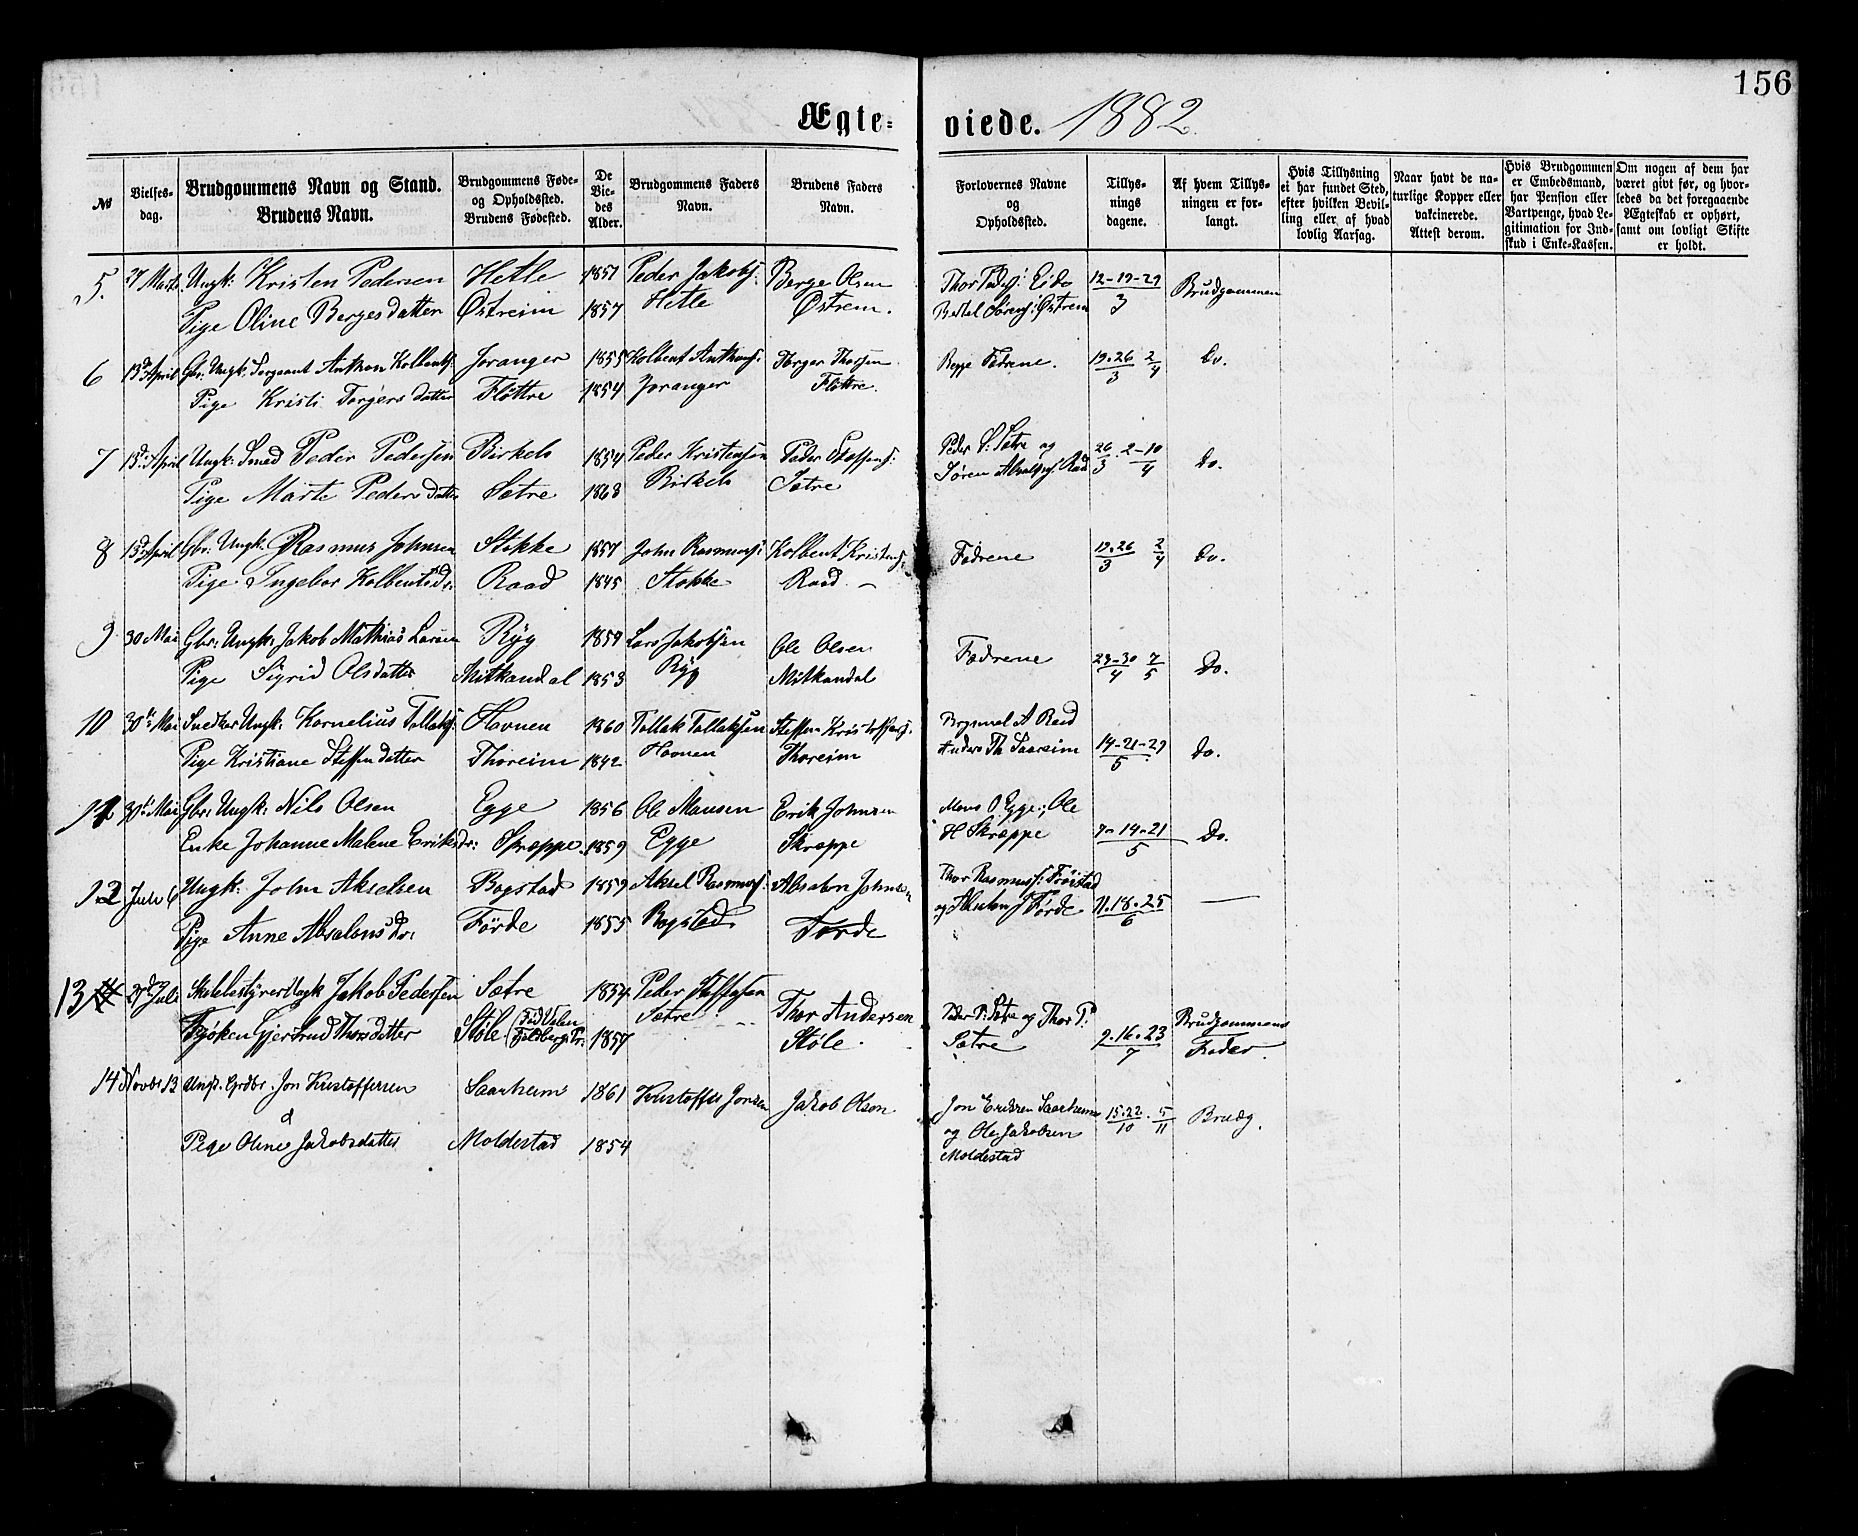 156
Ægte= viede. 1882.
№ | Vielses-dag. | Brudgommens Navn og Stand. Brudens Navn. | Brudgommens Føde- og Opholdssted. Brudens Fødested. | De Vie-des Alder. | Brudgommens Faders Navn. | Brudens Faders Navn. | Forlovernes Navne og Opholdssted. | Tillys-nings dagene. | Af hvem Tillys-ningen er for-langt. | Hvis Tillysning ei har fundet Sted, efter hvilken Bevil-ling eller af hvad lovlig Aarsag. | Naar havt de na-turlige Kopper eller vakcinerede. Attest derom. | Hvis Brudgommen er Embedsmand, har Pension eller Vartpenge, hvad Le-gitimation for Ind-skud i Enke-Kassen. | Om nogen af dem har været givt før, og hvor-ledes da det foregaaende Ægteskab er ophørt, samt om lovligt Skifte er holdt.
5. 27 Marts Ungk: Kristen Pedersen Hetle 1851 Peder Jakobs: Berge Olsen Thor Eide 12-19-29 Brudgommen
Pige Oline Bergesdatter Østreim 1857 Hetle Østrem. Bertel Sørens: Østrem 3
6 13de April Gbr: Ungk: Sergeant Anthon Kolbents: Joranger 1855 Kolbent Anthons: Torger Thorsen Fædrene. 19.26 2 Do.
Pige Kristi Torgersdatter Fløttre 1854 Joranger Fløttre. 3 4
7 13de April Ungk: Smed Peder Pedersen Birkelo 1854 Peder Kristensen Peder Steffens: Peder S: Sætre og 26 2-10 Do.
Pige Marte Pedersdatter Sætre 1863 Birkelo Sætre Søren Absalons: Raad 3 4
8 13de April Gbr: Ungk: Rasmus Johnsen Stokke 1857 John Rasmuss: Kolbent Kristens: Fædrene 19.26 2 Do.
Pige Ingebor Kolbentsd: Raad 1845 Stokke Raad. — 3 4
9 30 Mai Gbr: Ungk: Jakob Mathias Larsen Ryg 1859 Lars Jakobsen Ole Olsen Fædrene 23-30 7 Do.
Pige Sigrid Olsdatter Mitkandal 1853 Ryg Mitkandal 4 5
10 30te Mai Snedker Ungk: Kornelius Tollaks: Hovnen 1860 Tollak Tollaksen Steffen Kristoffers: A Raad
Pige Kristiane Steffensdatter Thoreim 1842 Hovnen Thoreim Anders Th Saareim 14-21-29 Do.
5
11 30te Mai Gbr: Ungk: Nils Olsen Egge 1856 Ole Monsen Erik Johnsen Mons O Egge; Ole
Enke Johanne Malene Eriksdr: Skræppe. 1859 Egge Skræppe H Skræppe 7-14-21 Do.
5
12 Juli 6 Ungk: John Akselsen Bogstad 1859 Aksel Rasmuss: Absalon Johnsen Thor Rasmuss: Frøistad
Pige Anne Absalonsdr: Førde 1855 Bogstad Førde og Absalon J Førde 11.18.25 —
6
13 27de Juli Skolebestyrer Ungk Jakob Pedersen Sætre 1854 Peder Steffensen Thor Andersen Peder P: Sætre og Thor P: Brudgommens
Frøken Gjertrud Thorsdatter Støle 1857 Sætre Støle. Sætre 9.16.23 Fader.
7
14 Novbr 13 Ungk. Grdbr. Jon Kristoffersen Saarheim 1861 Kristoffer Jonsen Jakob Olson. Jon Eriksen Saarheim 15.22. 5 Brudg.
d og Ole Jakobsen 10 11
Pige Oline Jakobsdatter Moldestad 1854 Moldestad